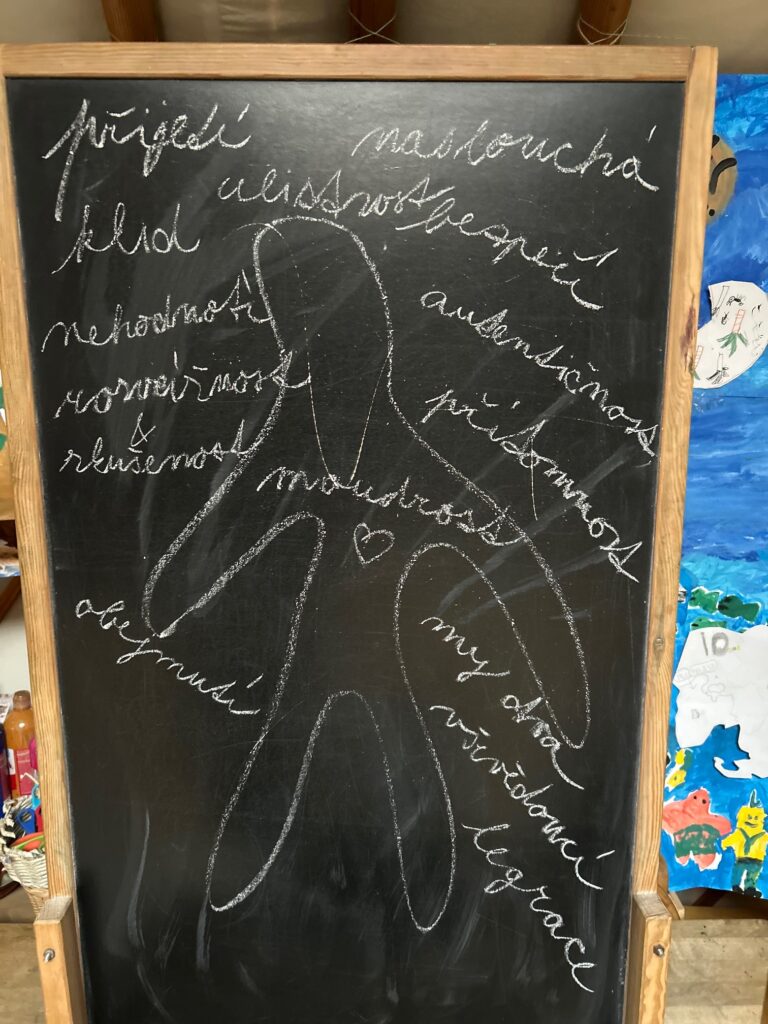 přijetí
naslouchá
ulistnost
bezpečí
klid
autentičnost
nehodnotí
rozvážnost
&
zkušenost
přítomnost
moudrost
objetí
my dva
vševědoucí
legrace
10